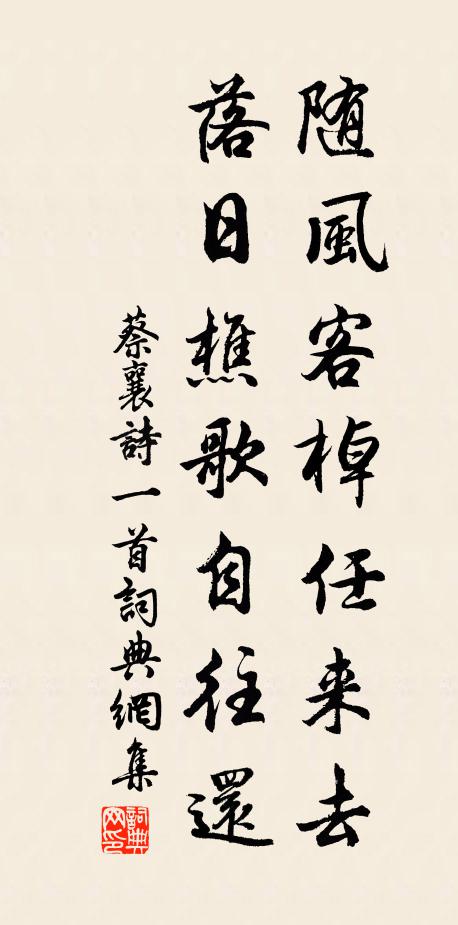 随風客棹任来去
落日樵歌自往還
蔡襄詩一首詞典網集
詞典網印